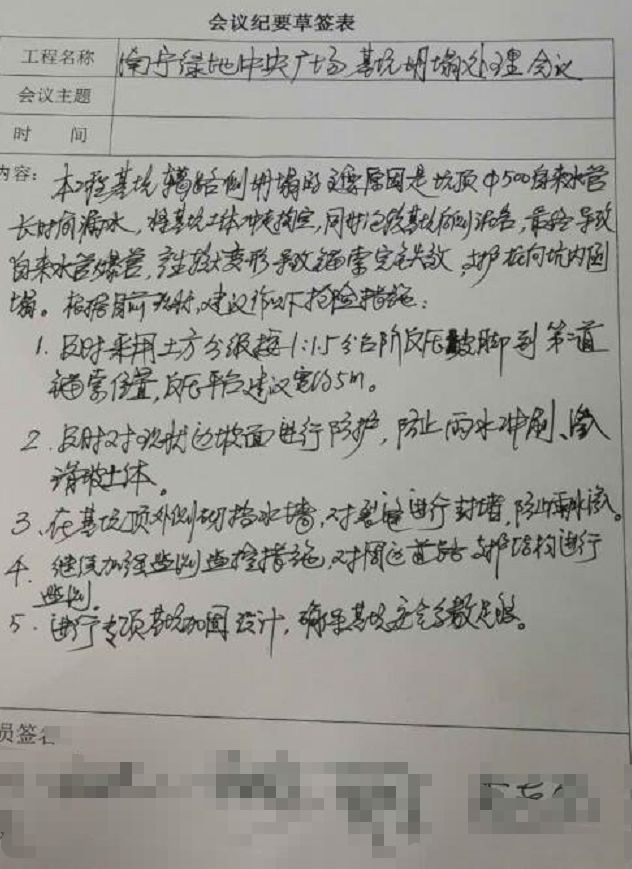 会议纪要草签表
工程名称 南宁绿地中央广场基坑坍塌处理会议
会议主题
时 间
内容: 本工程基坑侧坍塌的主要原因是坑顶Φ500自来水管
长时间漏水,将基坑土体冲刷掏空,同时基坑侧,最终导致
自来水管爆管,产生较大变形导致锚索完全失效,支护桩向坑内倒
塌。根据目前现状,建议作以下抢险措施:
1. 及时采用土方分级按1:1.5分台阶反压坡脚到第二道
锚索位置,反压平台建议宽约5m。
2. 及时对现状边坡面进行防护,防止雨水冲刷、渗入
滑坡土体。
3、在基坑顶外侧砌挡水墙,对裂缝进行封堵,防止雨水渗入。
4. 继续加强监测监控措施,对周边道路支护结构进行
监测.
5. 进行专项基坑加固设计,确保基坑安全系数足够。
员签名